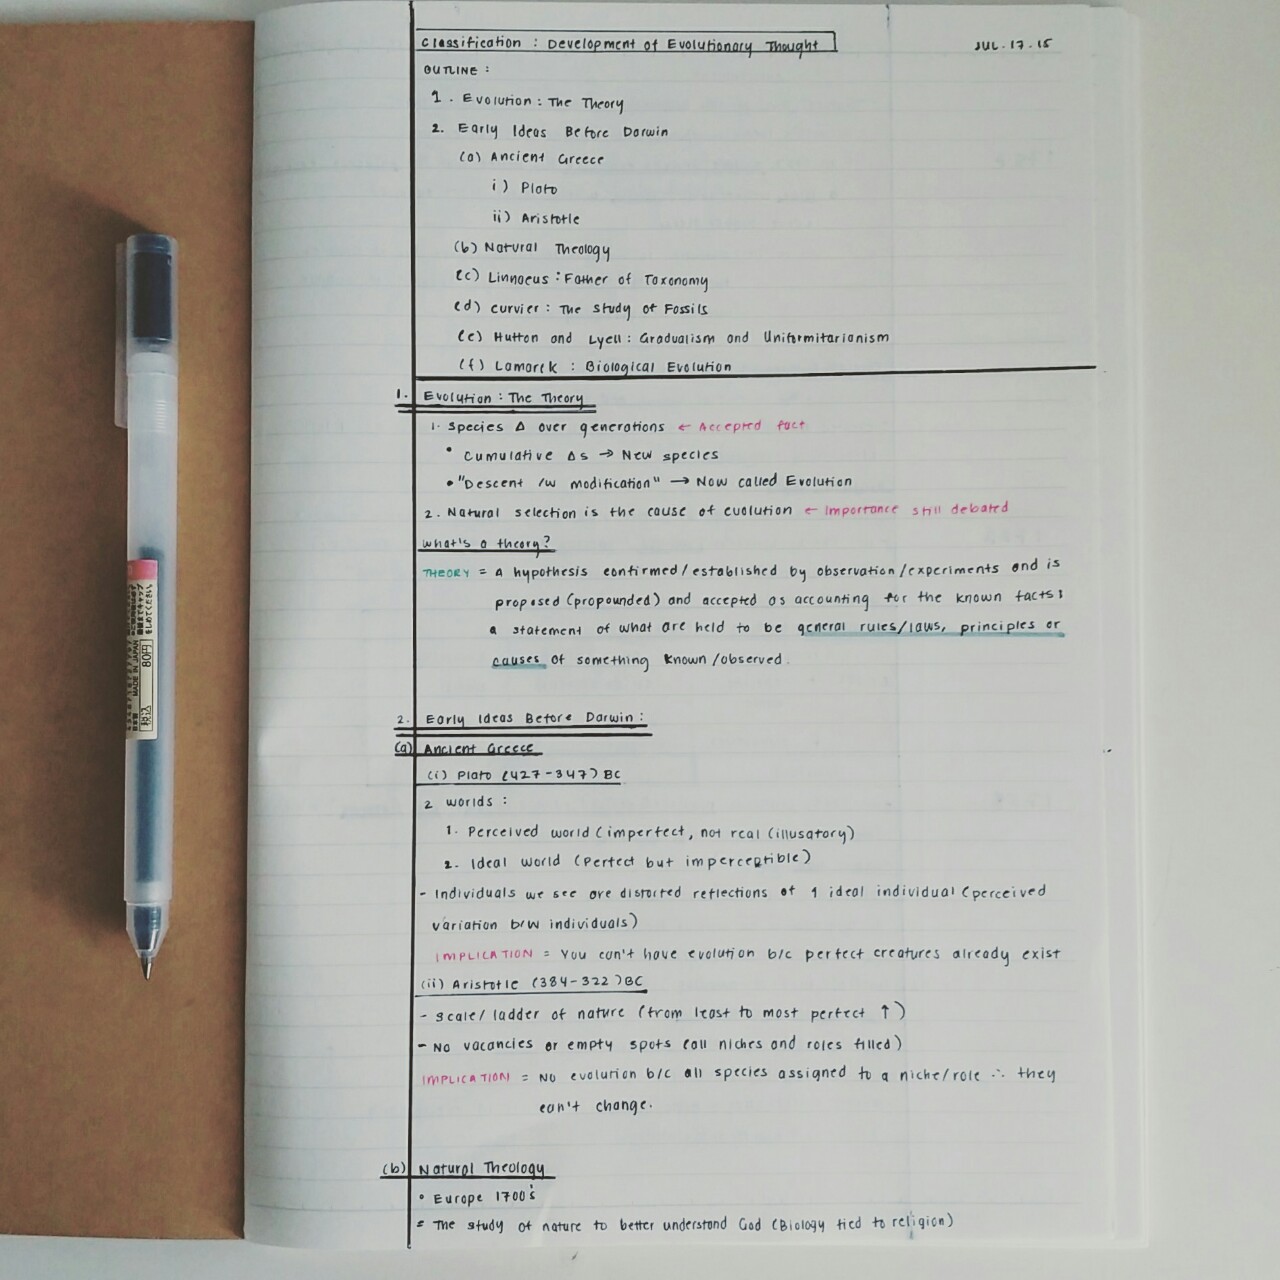 Classification : Development of Evolutionary Thought
JUL.17.15
OUTLINE :
1. Evolution : The Theory
2. Early Ideas Before Darwin
(a) Ancient Greece
i) Plato
ii) Aristotle
(b) Natural Theology
(c) Linnaeus : Father of Taxonomy
(d) Curvier : The Study of Fossils
(e) Hutton and Lyell : Gradualism and Uniformitarianism
(f) Lamarck : Biological Evolution
1. Evolution : The Theory
1. Species Δ over generations ← Accepted fact
• Cumulative Δs → New species
• "Descent /w modification" → Now called Evolution
2. Natural selection is the cause of evolution ← Importance still debated
What's a theory?
THEORY = A hypothesis confirmed/established by observation/experiments and is
proposed (propounded) and accepted as accounting for the known facts;
a statement of what are held to be general rules/laws, principles or
causes of something known/observed.
2. Early Ideas Before Darwin :
(a) Ancient Greece
(i) Plato (427-347) BC
2 worlds :
1. Perceived world (imperfect, not real (illusatory)
2. Ideal world (Perfect but imperceptible)
- Individuals we see are distorted reflections of 1 ideal individual (perceived
variation b/w individuals)
IMPLICATION = You can't have evolution b/c perfect creatures already exist
(ii) Aristotle (384-322) BC
- scale/ladder of nature (from least to most perfect ↑)
- No vacancies or empty spots (all niches and roles filled)
IMPLICATION = No evolution b/c all species assigned to a niche/role ∴ they
can't change.
(b) Natural Theology
• Europe 1700's
= The study of nature to better understand God (Biology tied to religion)
MADE IN JAPAN
80円
税込